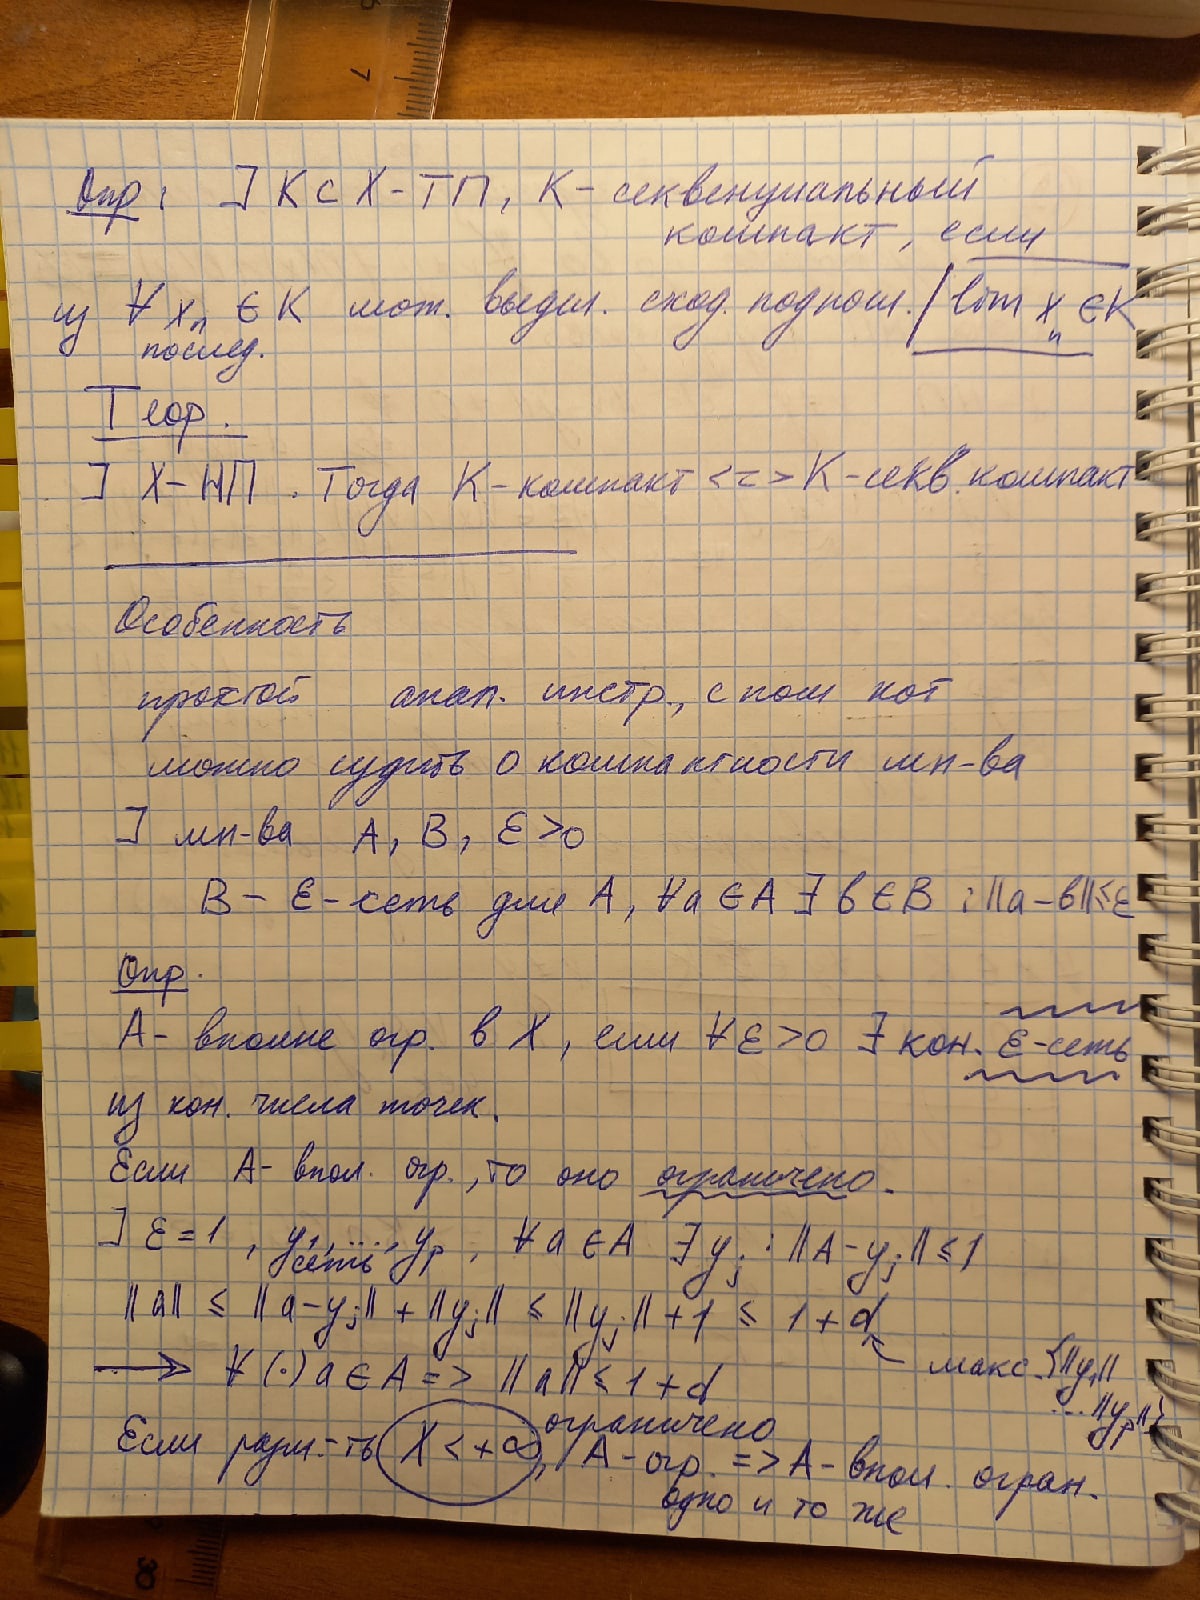 Опр: ] K ⊂ X - ТП, K - секвенциальный
компакт, если
из ∀ xₙ ∈ K мож. выдел. сход. подпосл. / lim xₙ ∈ K
послед.
Теор.
] X - НП. Тогда K - компакт <=> K - секв. компакт
Особенность
простой анал. инстр., с пом кот
можно судить о компактности мн-ва
] мн-ва A, B, ε > 0
B - ε-сеть для A, ∀a ∈ A ∃ b ∈ B : ||a - b|| ≤ ε
Опр.
A - вполне огр. в X, если ∀ε > 0 ∃ кон. ε-сеть
из кон. числа точек.
Если A - впол. огр., то оно ограничено.
] ε = 1, y₁, ..., yₚ, ∀a ∈ A ∃ yⱼ : ||A - yⱼ|| ≤ 1
сеть
||a|| ≤ ||a - yⱼ|| + ||yⱼ|| ≤ ||yⱼ|| + 1 ≤ 1 + d
макс. {||y₁||
... ||yₚ||}
→ ∀ (·) a ∈ A => ||a|| ≤ 1 + d
ограничено
Если разм-ть X < +∞, A - огр. => A - впол. огран.
одно и то же
7
30